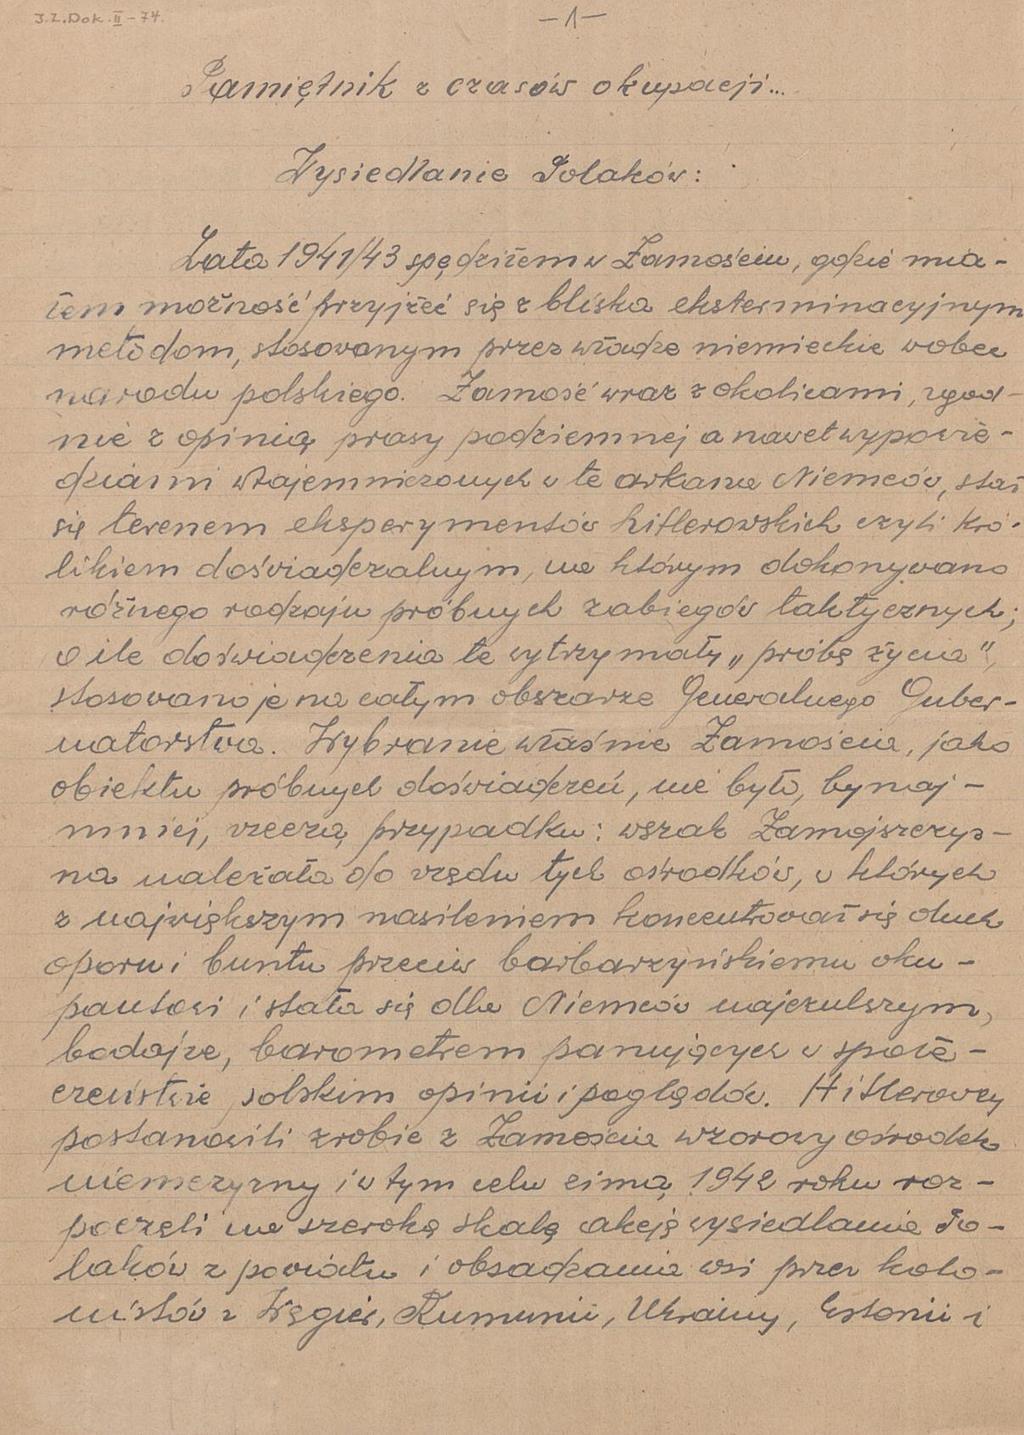 I.Z.Dok.II-74.
-1-
Pamiętnik z czasów okupacji...
Wysiedlanie Polaków:
Lata 1941/43 spędziłem w Zamościu, gdzie mia-
łem możność przyjżeć się z bliska eksterminacyjnym
metodom, stosowanym przez władze niemieckie wobec
narodu polskiego. Zamość wraz z okolicami, zgod-
nie z opinią prasy podziemnej a nawet wypowie-
dziami wtajemniczonych w te arkana Niemców, stał
się terenem eksperymentów hitlerowskich czyli kró-
likiem doświadczalnym, na którym dokonywano
różnego rodzaju próbnych zabiegów taktycznych;
o ile doświadczenia te wytrzymały „próbę życia",
stosowano je na całym obszarze Generalnego Guber-
natorstwa. Wybranie właśnie Zamościa, jako
obiektu próbnych doświadczeń, nie było, bynaj-
mniej, rzeczą przypadku: wszak Zamojszczyz-
na należała do rzędu tych ośrodków, w których
z największym nasileniem koncentrował się duch
oporu i buntu przeciw barbarzyńskiemu oku-
pantowi i stała się dla Niemców najczulszym,
bodajże, barometrem panujących w społe-
czeństwie polskim opinii i poglądów. Hitlerowcy
postanowili zrobić z Zamościa wzorowy ośrodek
niemczyzny i w tym celu zimą 1942 roku roz-
poczęli na szeroką skalę akcję wysiedlania Po-
laków z powiatu i obsadzania wsi przez kolo-
nistów z Węgier, Rumunii, Ukrainy, Estonii i